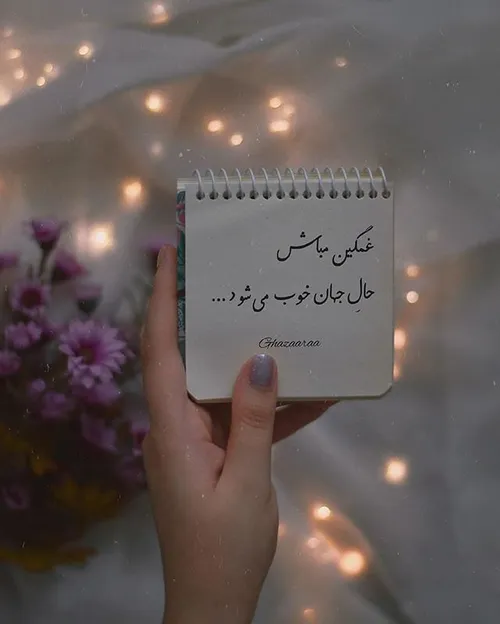 غمگین مباش
حالِ جهان خوب می شود ...
Ghazaaraa